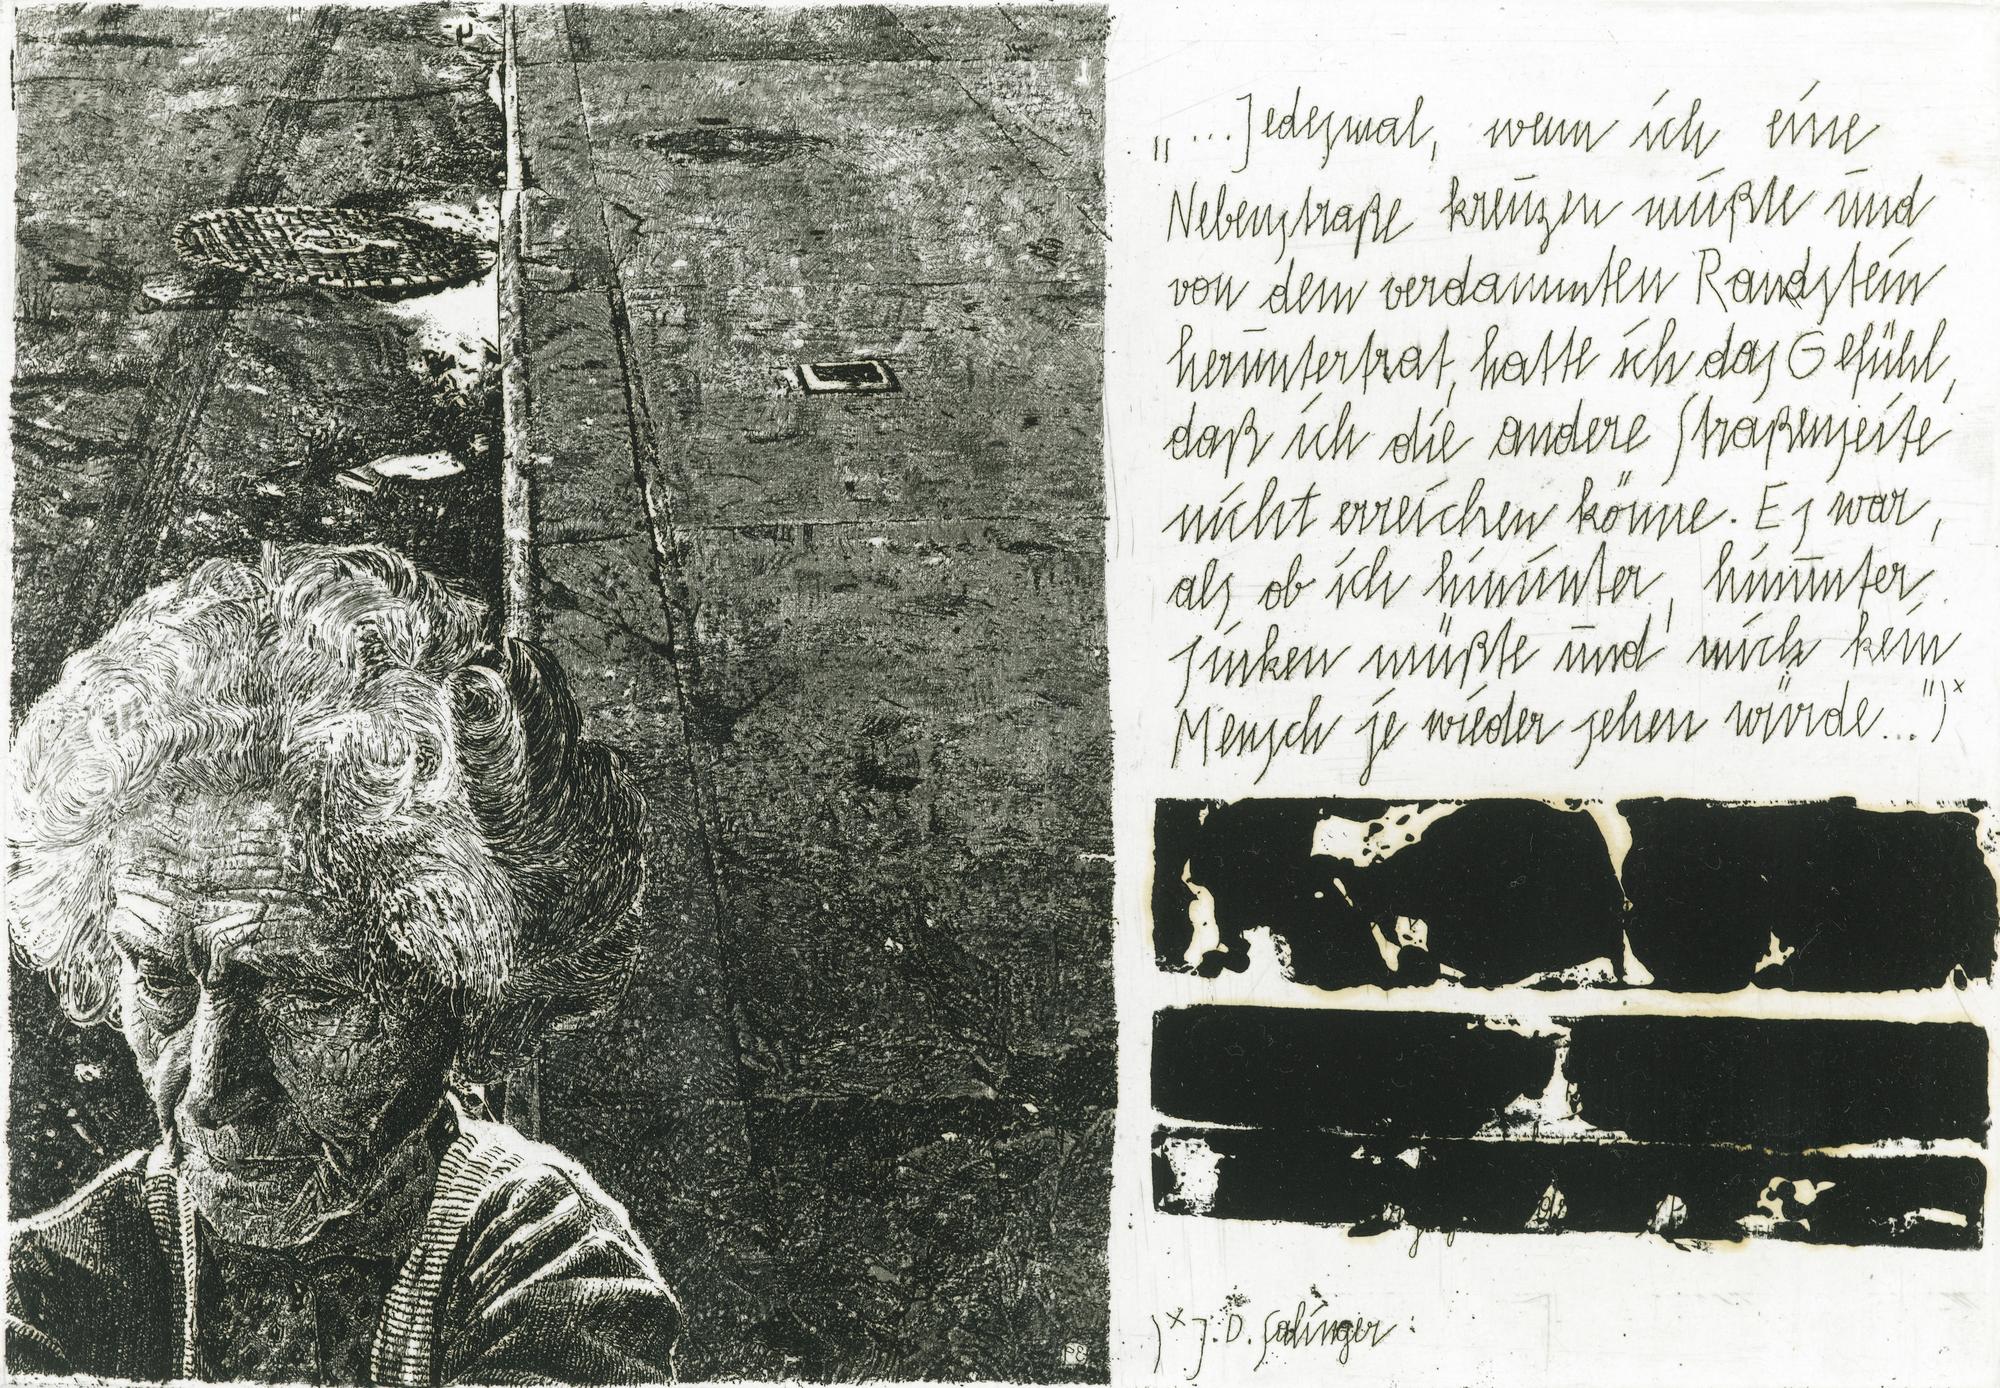 „...Jedesmal, wenn ich eine
Nebenstraße kreuzen mußte und
von dem verdammten Randstein
heruntertrat, hatte ich das Gefühl,
daß ich die andere Straßenseite
nicht erreichen könne. Es war,
als ob ich hinunter, hinunter,
sinken müßte und mich kein
Mensch je wieder sehen würde...")x
)x J. D. Salinger